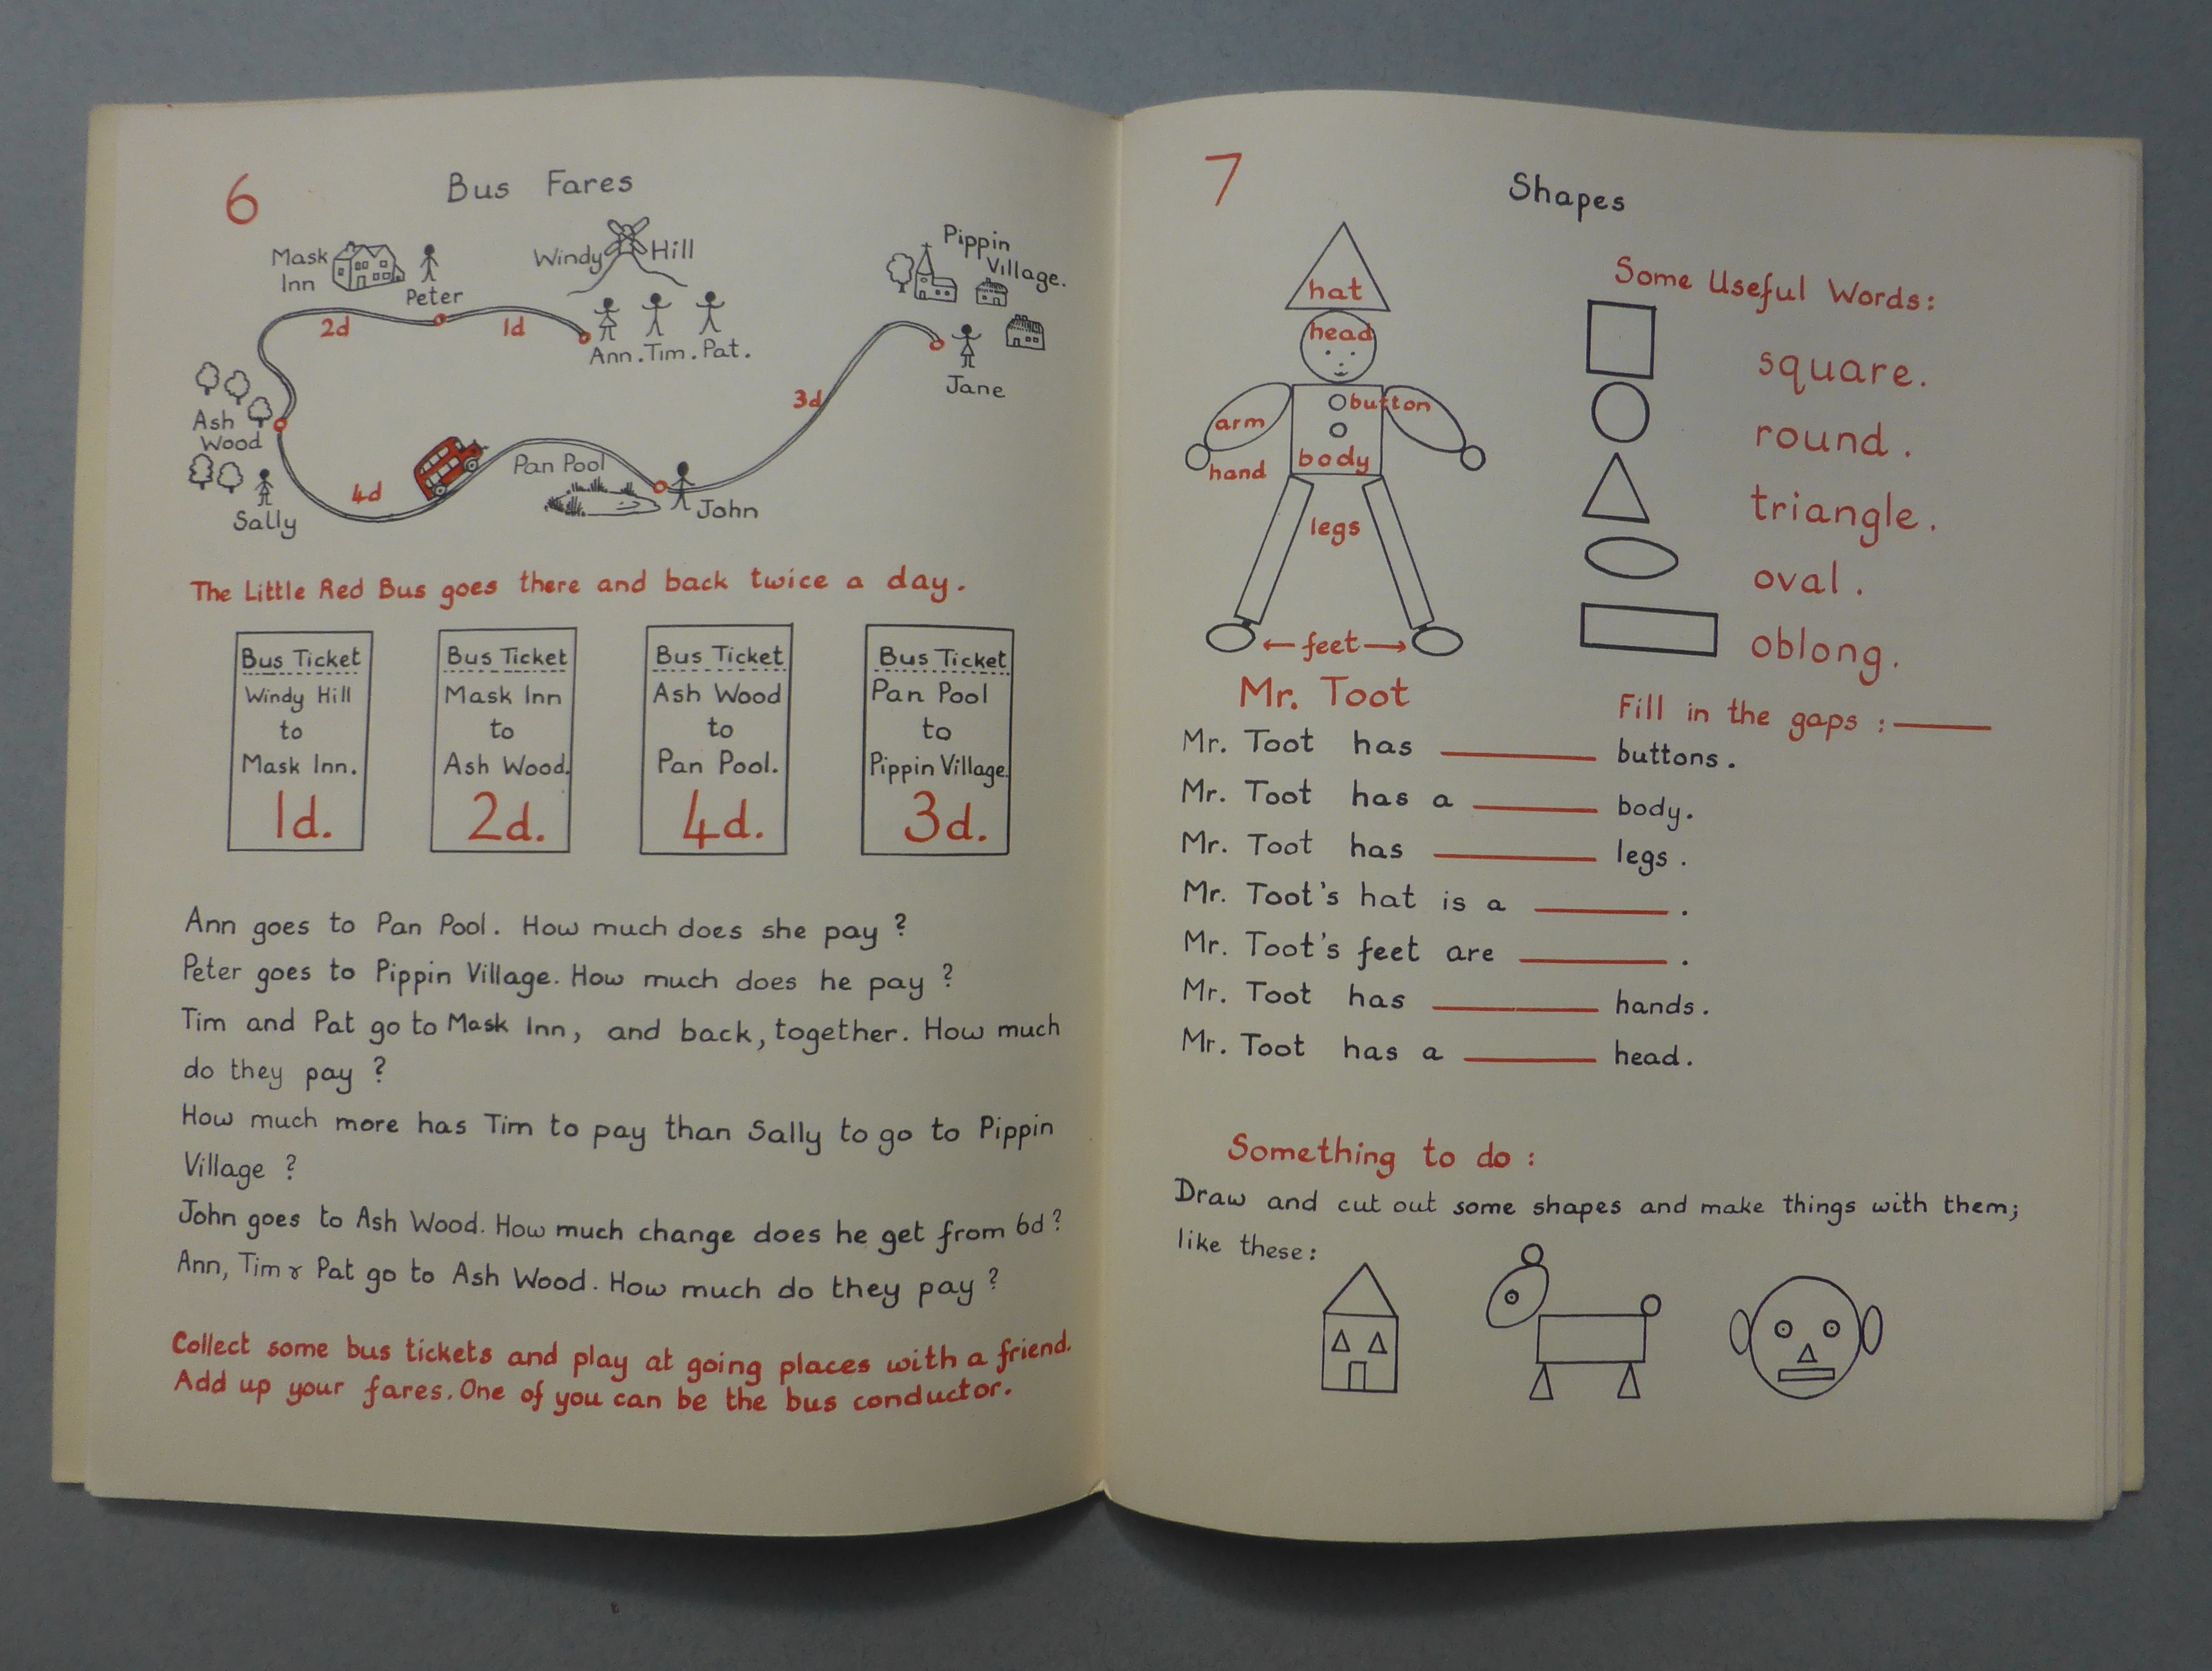 6
Bus Fares
Mask
Inn
Peter
Windy Hill
Pippin
Village.
2d
1d
Ann. Tim. Pat.
Jane
Ash
Wood
3d
4d
Pan Pool
Sally
John
The Little Red Bus goes there and back twice a day.
Bus Ticket
Windy Hill
to
Mask Inn.
1d.
Bus Ticket
Mask Inn
to
Ash Wood.
2d.
Bus Ticket
Ash Wood
to
Pan Pool.
4d.
Bus Ticket
Pan Pool
to
Pippin Village.
3d.
Ann goes to Pan Pool. How much does she pay?
Peter goes to Pippin Village. How much does he pay?
Tim and Pat go to Mask Inn, and back, together. How much
do they pay?
How much more has Tim to pay than Sally to go to Pippin
Village?
John goes to Ash Wood. How much change does he get from 6d?
Ann, Tim & Pat go to Ash Wood. How much do they pay?
Collect some bus tickets and play at going places with a friend.
Add up your fares. One of you can be the bus conductor.
7
Shapes
hat
head
button
arm
body
hand
legs
← feet →
Mr. Toot
Some Useful Words:
square.
round.
triangle.
oval.
oblong.
Fill in the gaps : ____
Mr. Toot has ____ buttons.
Mr. Toot has a ____ body.
Mr. Toot has ____ legs.
Mr. Toot's hat is a ____.
Mr. Toot's feet are ____.
Mr. Toot has ____ hands.
Mr. Toot has a ____ head.
Something to do:
Draw and cut out some shapes and make things with them;
like these: